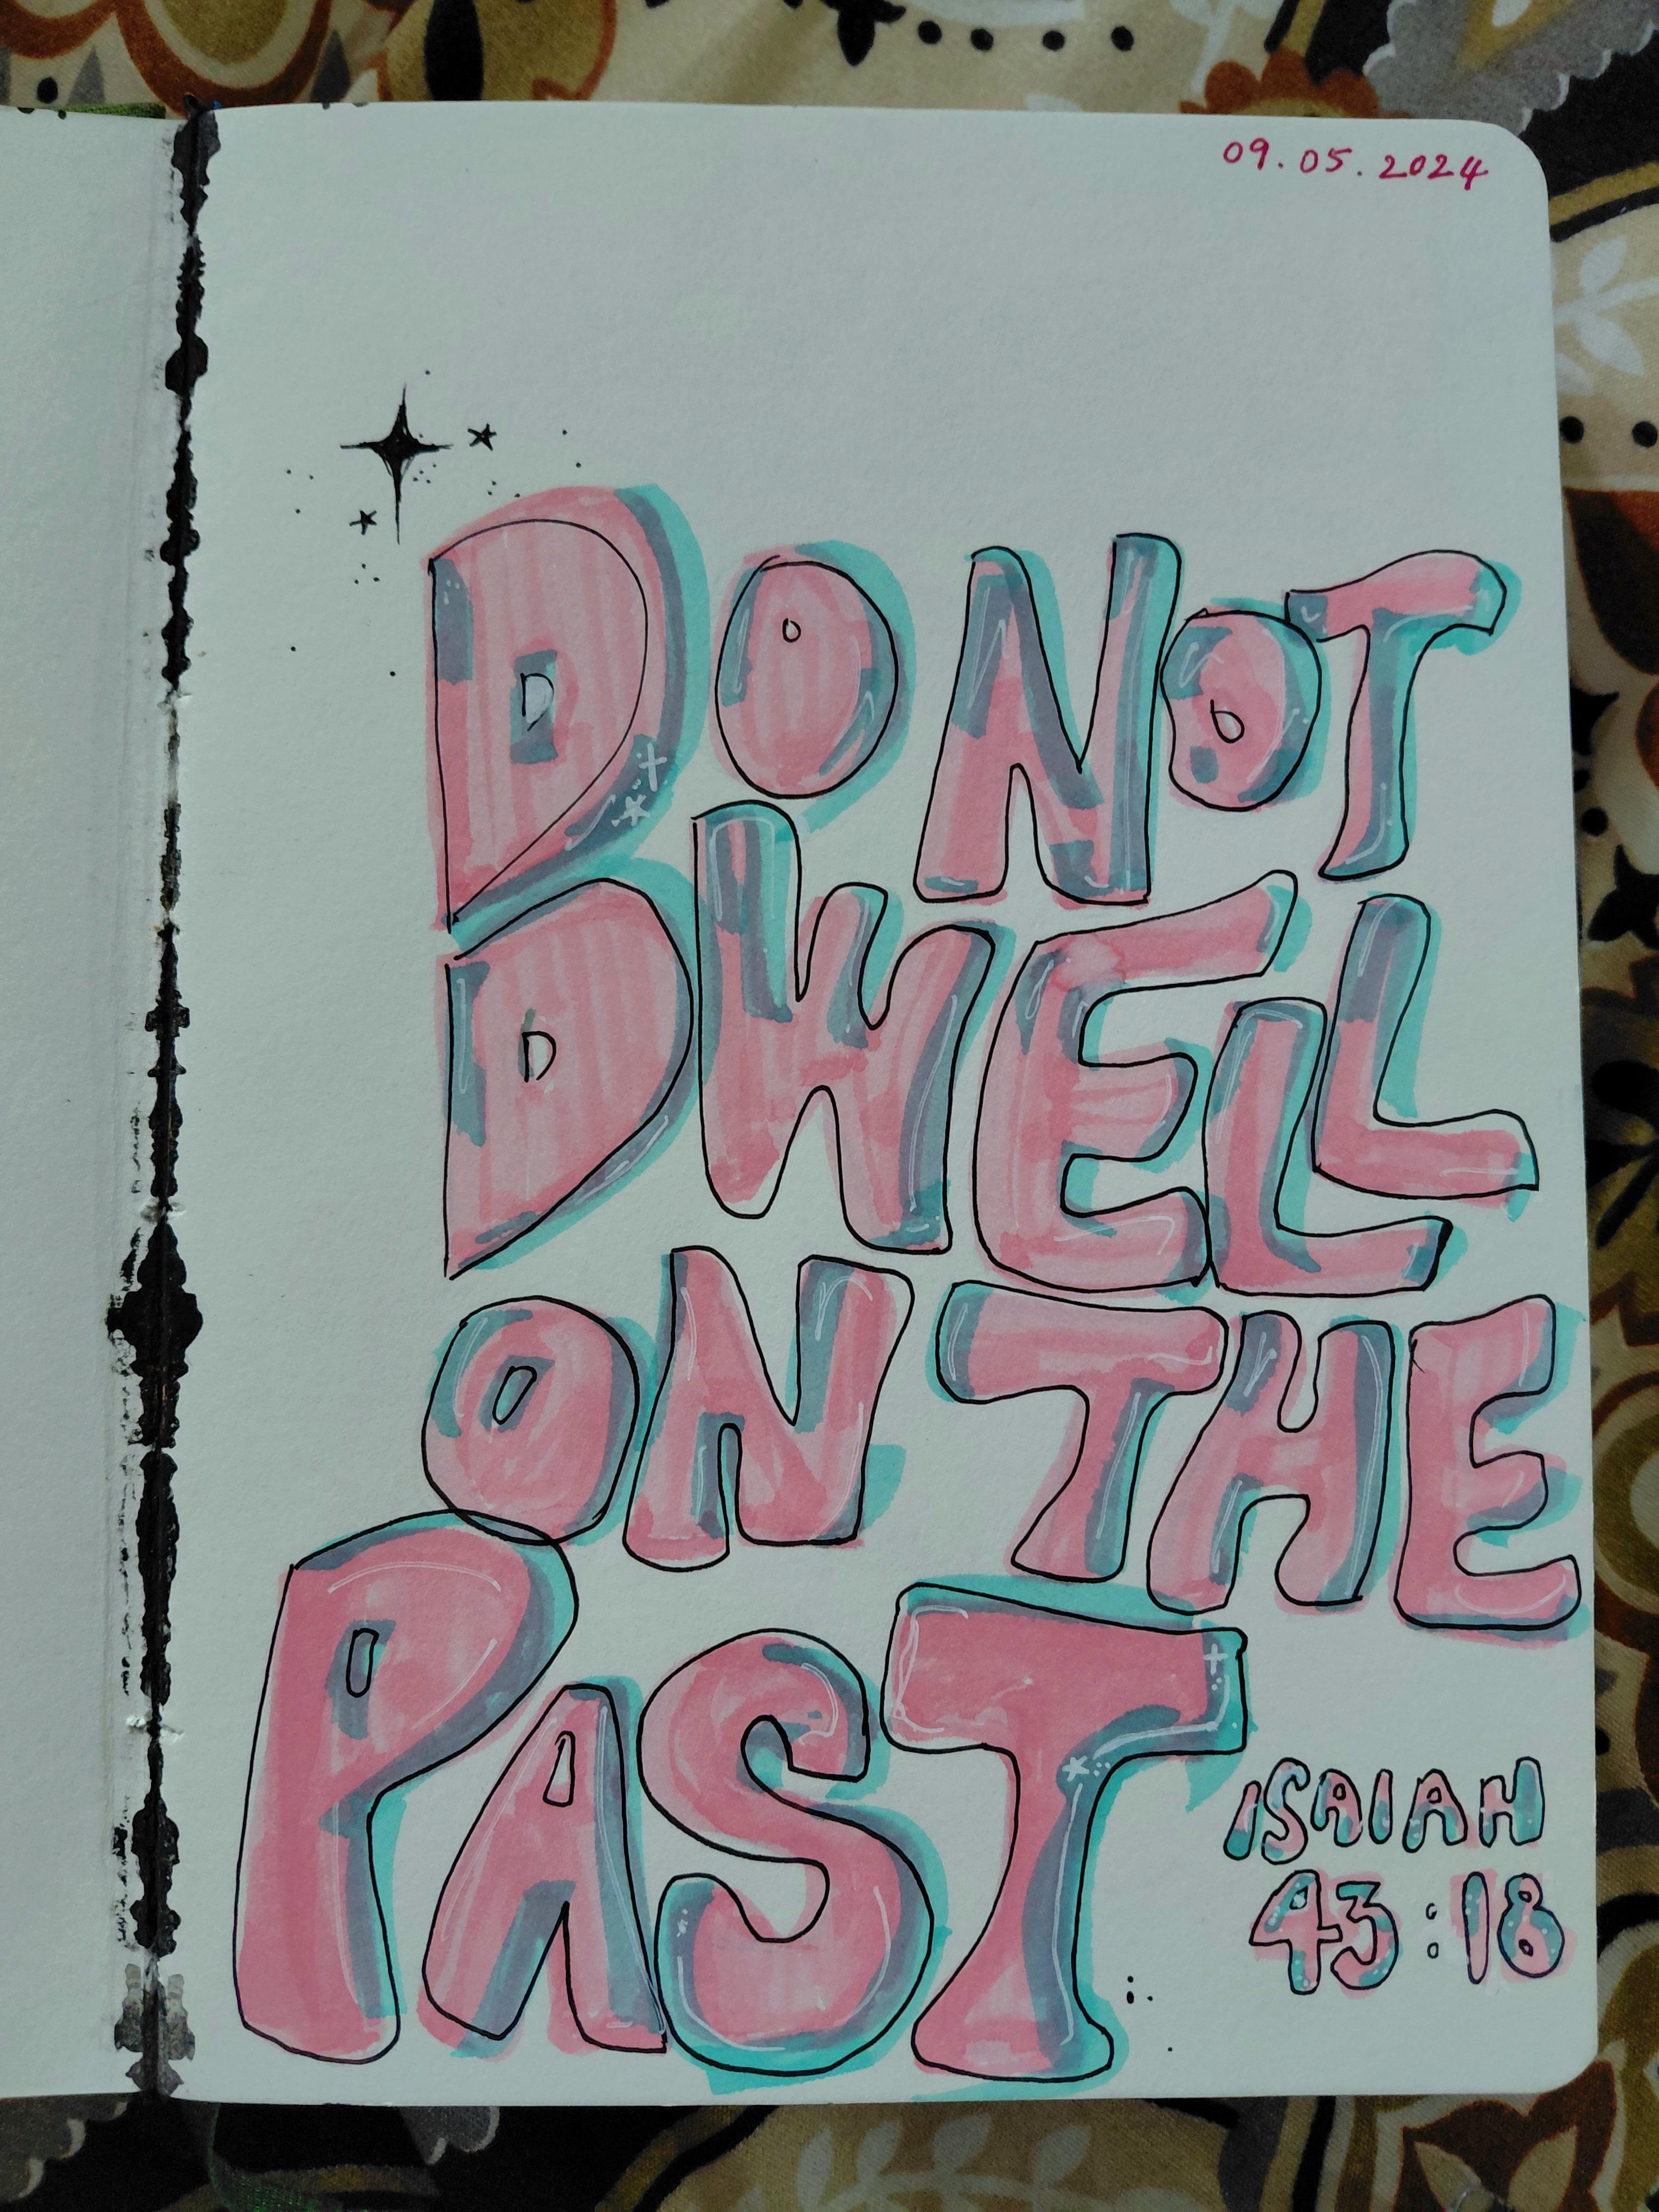 09.05.2024
DO NOT
DWELL
ON THE
PAST
ISAIAH
43:18